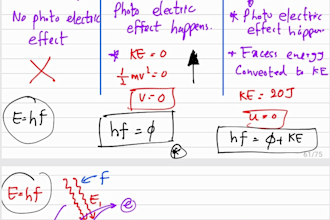 No photo electric
effect
E=hf
Photo electric
effect happens.
* KE = 0
½mv² = 0
v = 0
hf = φ
* Photo electric
effect happen
+ Excess energy
Converted to KE
KE = 20J
u = 0
hf = φ + KE
61/75
E=hf
f
E₁
e